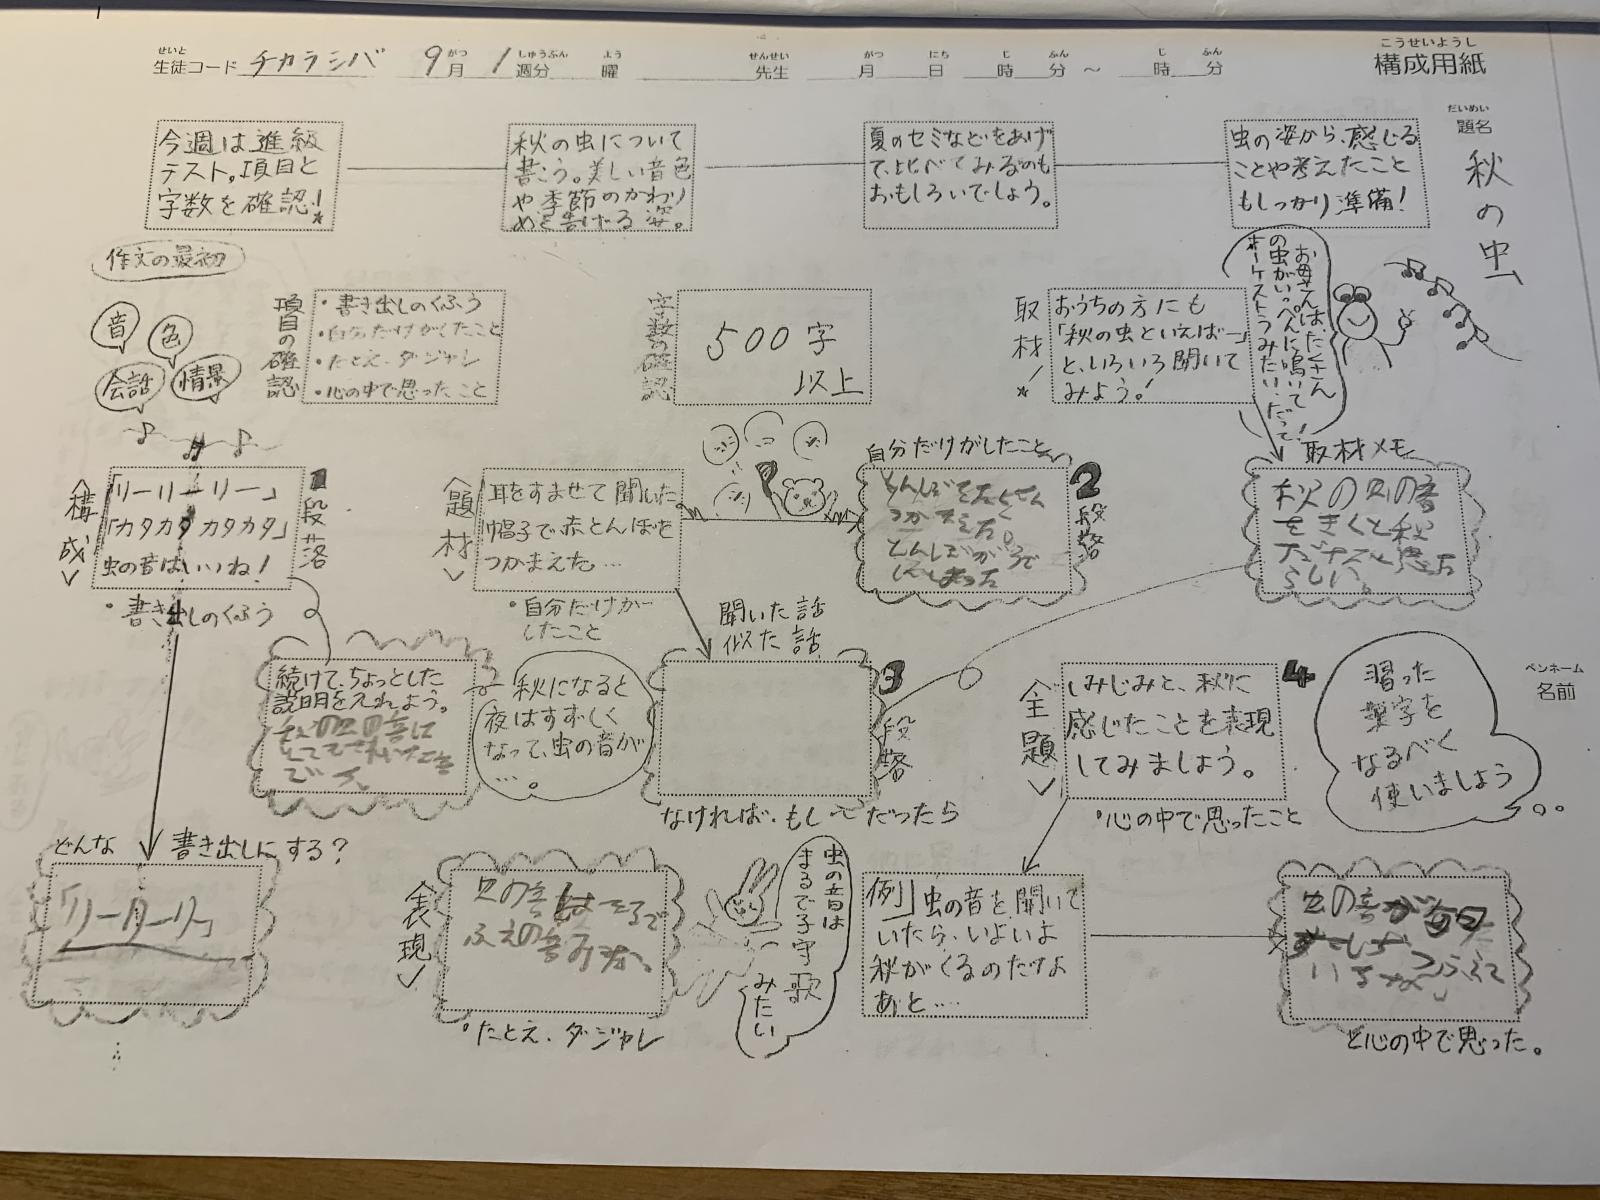 せいと
生徒コード チカラシバ 9月 1週分 曜 先生 月 日 時 分 ～ 時 分
がつ しゅうぶん よう せんせい がつ にち じ ふん じ ふん
こうせいようし
構成用紙
だいめい
題名
秋の虫
今週は進級
テスト。項目と
字数を確認!
秋の虫について
書こう。美しい音色
や季節のかわり
めを告げる姿。
夏のセミなどをあげ
て、比べてみるのも
おもしろいでしょう。
虫の姿から、感じる
ことや考えたこと
もしっかり準備!
作文の最初
音
色
会話
情景
項目の確認
・書き出しのくふう
・自分だけがしたこと
・たとえ、ダジャレ
・心の中で思ったこと
字数の確認
500字
以上
取材!
おうちの方にも
「秋の虫といえば―」
と、いろいろ聞いて
みよう!
お母さんは、たくさん
の虫がいっぺんに鳴いて
オーケストラみたい、だって!
<構成>
「リーリーリー」
「カタカタ カタカタ」
虫の音はいいね!
1段落
・書き出しのくふう
<題材>
耳をすませて聞いた
帽子で赤とんぼを
つかまえた…
・自分だけが
したこと
自分だけがしたこと
とんぼをたくさん
つかまえた。
とんぼが
しまった
2段落
取材メモ
秋の虫の音
をきくと秋
らしい。
続けて、ちょっとした
説明を入れよう。
秋の虫の音は
とてもきれいな音
です
秋になると
夜はすずしく
なって、虫の音が
…。
聞いた話
似た話
3段落
なければ、もし〜だったら
<全題>
しみじみと、秋に
感じたことを表現
してみましょう。
4
・心の中で思ったこと
習った
漢字を
なるべく
使いましょう
ペンネーム
名前
どんな 書き出しにする?
「リーリーリー」
<表現>
虫の音はまるで
ふえの音みたい。
・たとえ、ダジャレ
虫の音は
まるで子守歌
みたい
例」虫の音を聞いて
いたら、いよいよ
秋がくるのだなよ
あと…
虫の音が毎日
と心の中で思った。